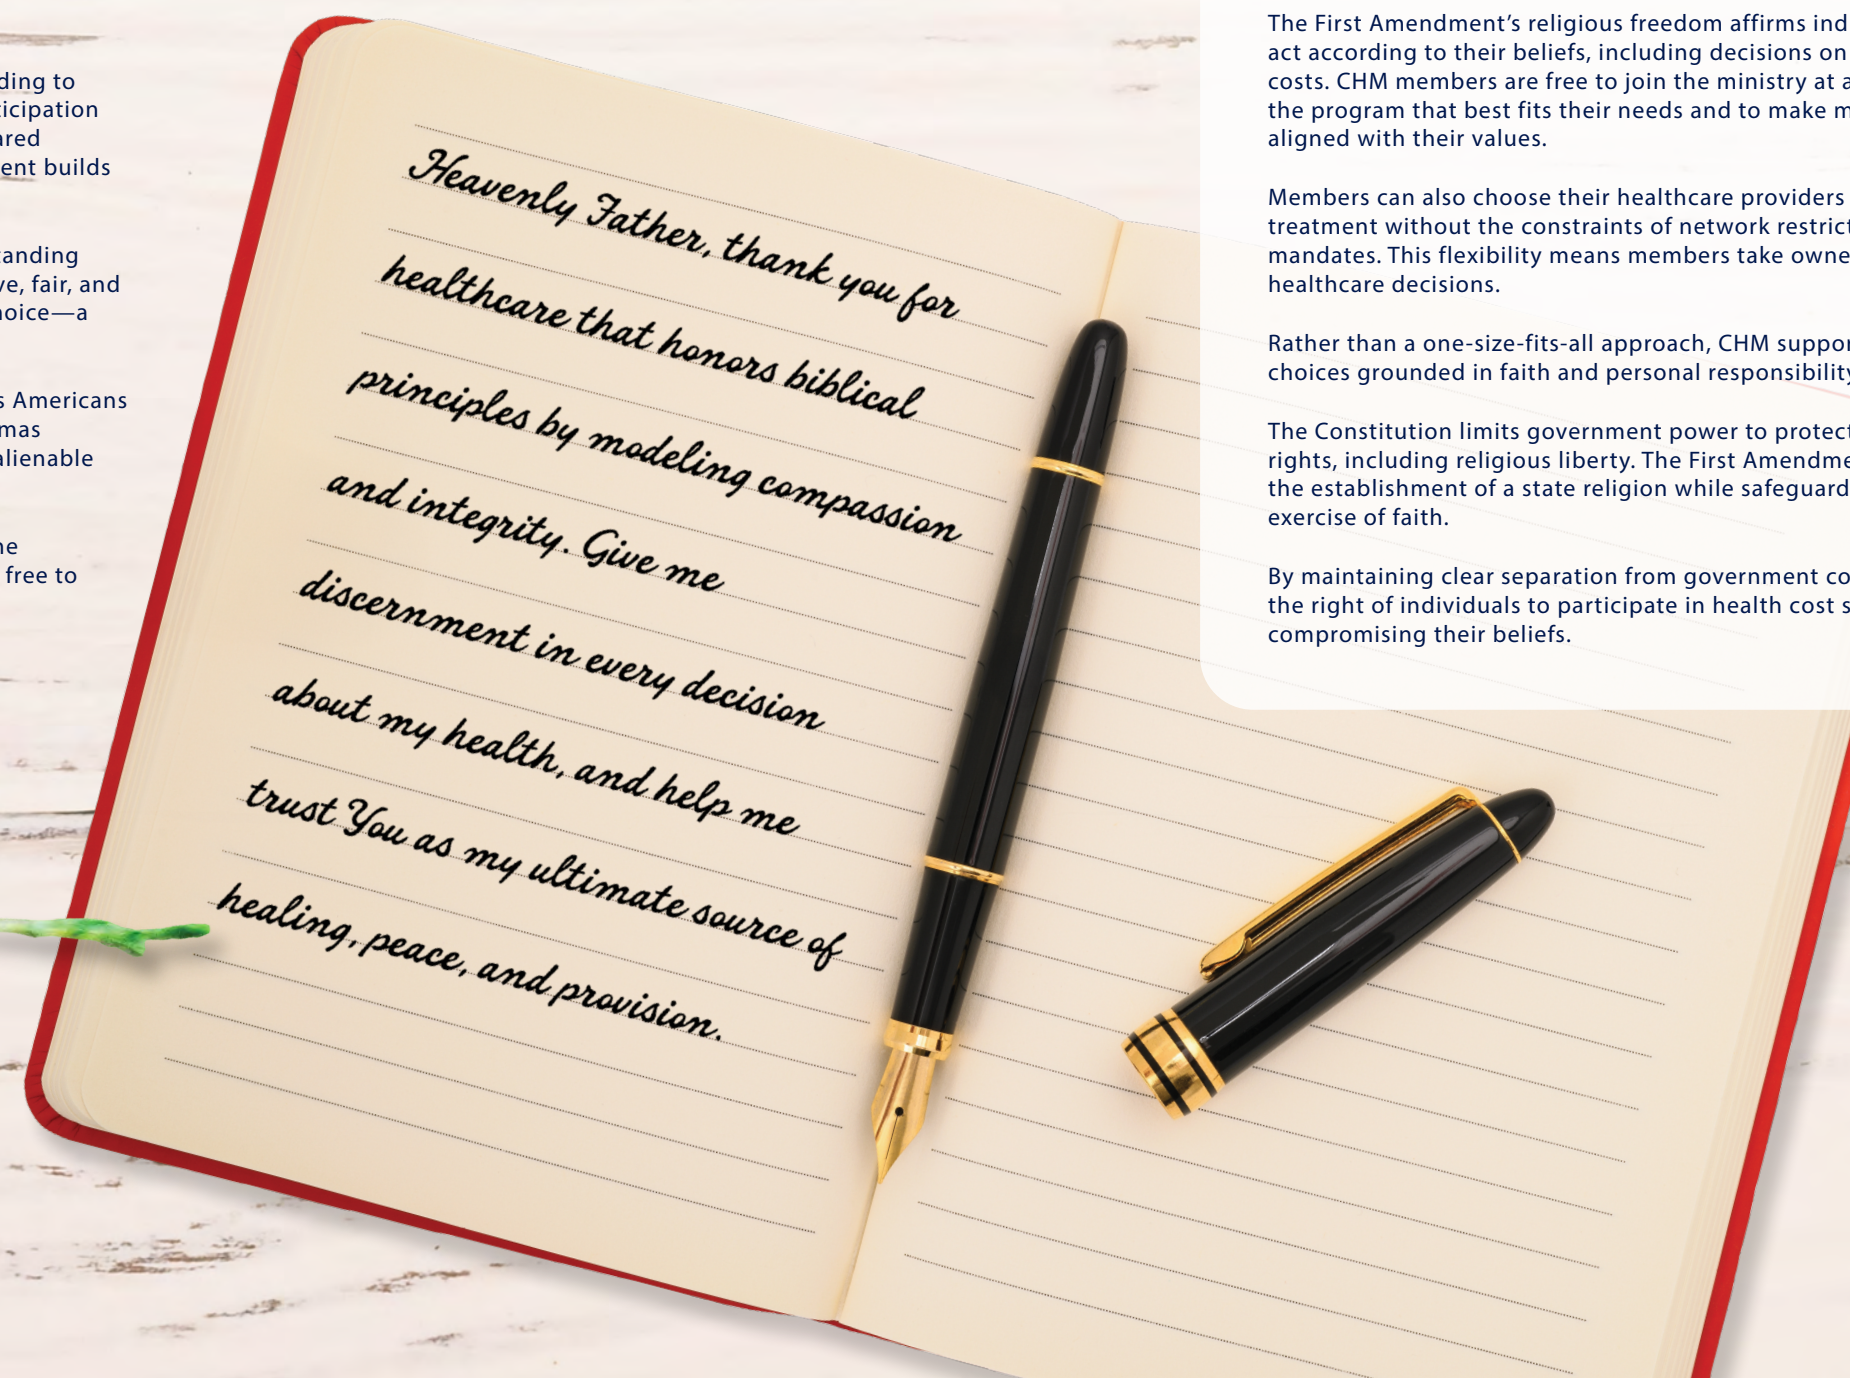 ding to
icipation
ared
ent builds
tanding
ve, fair, and
hoice—a
s Americans
mas
alienable
ne
free to
Heavenly Father, thank you for
healthcare that honors biblical
principles by modeling compassion
and integrity. Give me
discernment in every decision
about my health, and help me
trust You as my ultimate source of
healing, peace, and provision.
The First Amendment's religious freedom affirms ind
act according to their beliefs, including decisions on
costs. CHM members are free to join the ministry at a
the program that best fits their needs and to make m
aligned with their values.
Members can also choose their healthcare providers
treatment without the constraints of network restrict
mandates. This flexibility means members take owne
healthcare decisions.
Rather than a one-size-fits-all approach, CHM suppor
choices grounded in faith and personal responsibility
The Constitution limits government power to protect
rights, including religious liberty. The First Amendme
the establishment of a state religion while safeguard
exercise of faith.
By maintaining clear separation from government co
the right of individuals to participate in health cost s
compromising their beliefs.